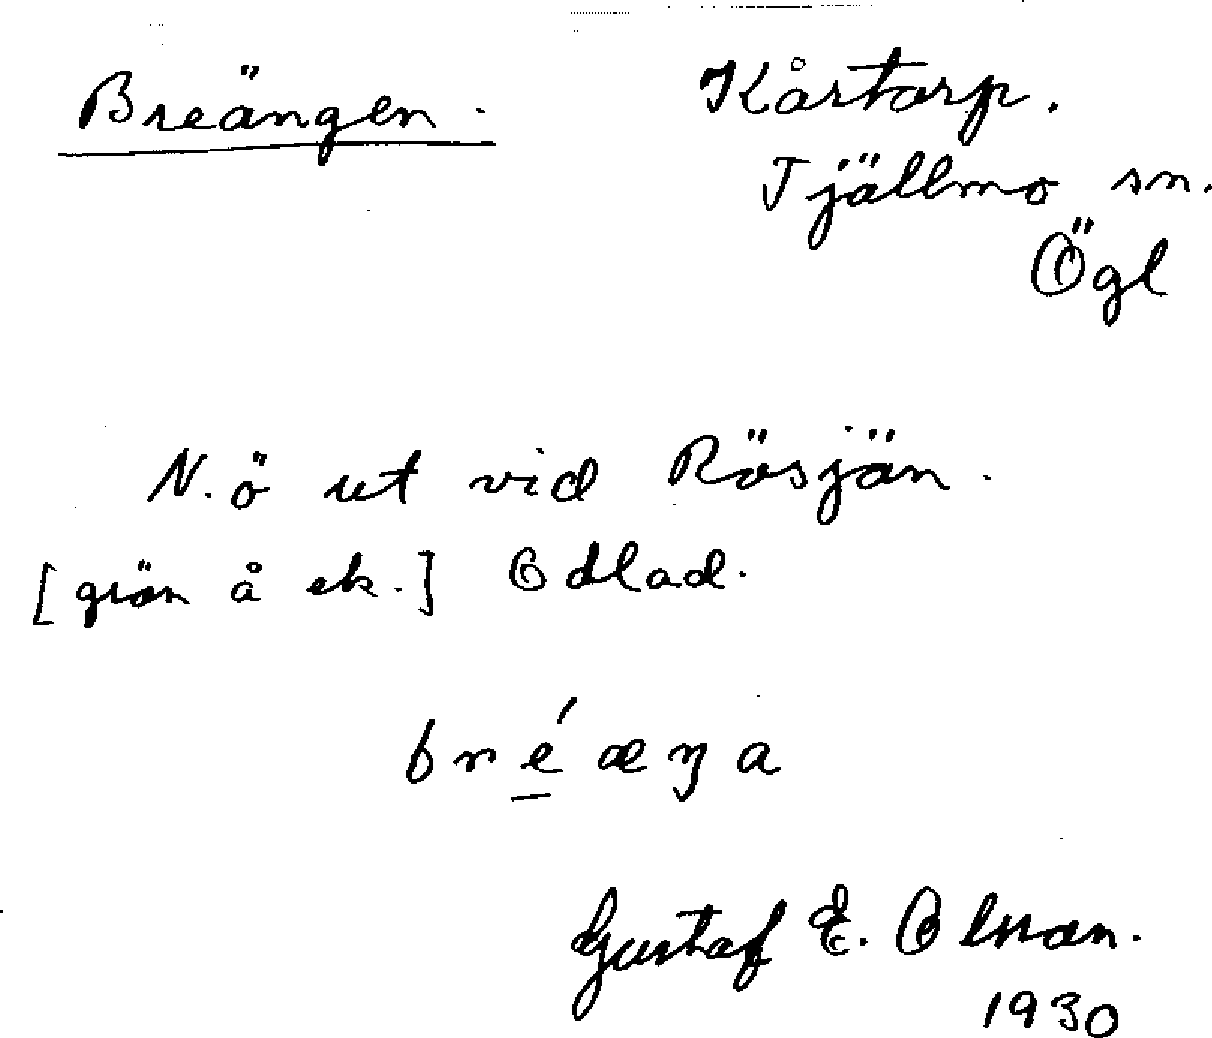 Breängen.
Kårtorp.
Tjällmo sn.
Ögl
N.ö ut vid Rösjön.
[grön å ek.] Odlad.
bréæŋa
Gustaf E. Olsson.
1930